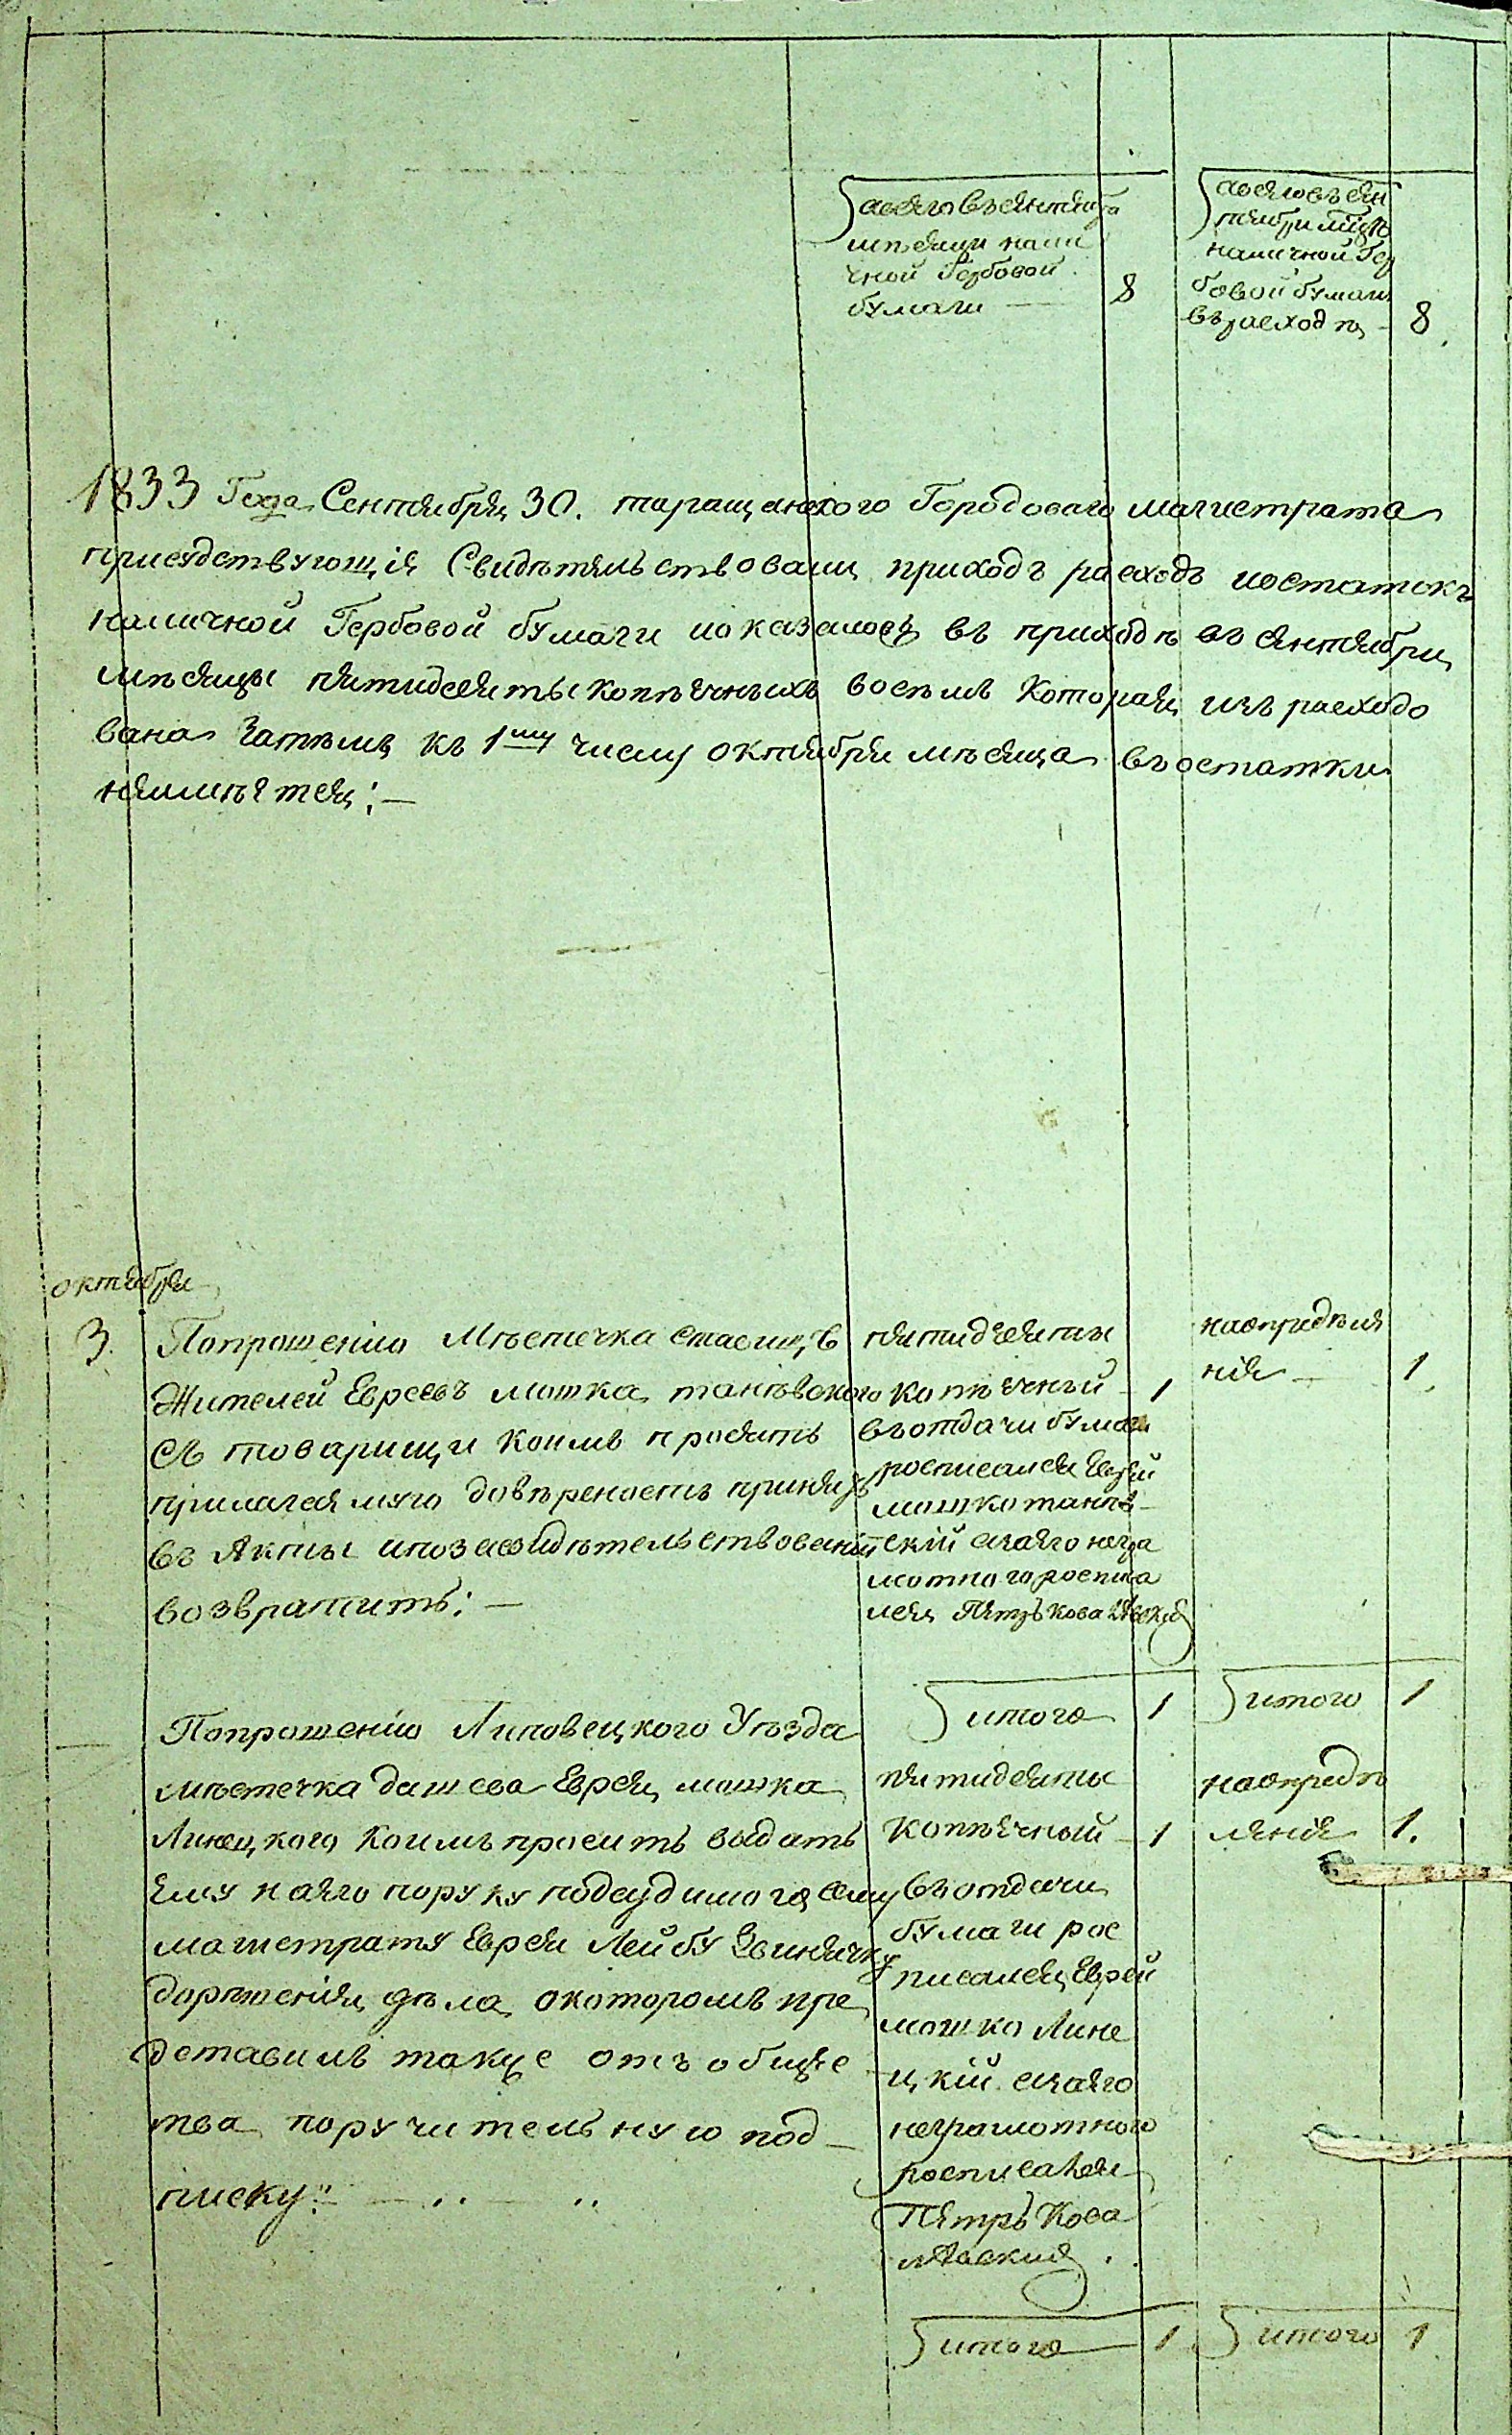 авсего въ сентября
мѣсяци нали
чной Гербовой
бумаги — 8
авсего въ сен
тябри мцѣ
наличной Гер
бовой бумаги
въ расходѣ - 8.
1833 Года Сентября 30. таращанского Городоваго магистрата
присудствующія Свидѣтельствовали приходъ расходъ иостатокъ
наличной Гербовой бумаги иоказалось въ приходѣ въ сентябри
мѣсяцы пятидесяты копѣечныхъ восемъ Которая изъ расходо
вана Затѣмъ къ 1му числу октября мѣсяца въ остатки
неимѣетея:—
октября
3. Попрошенію Мѣстечка стасищъ
Жителей Евреевъ мошка танѣвского
съ товарищи коимъ просятъ
прилагаемую довѣреность принять
въ Акты ипозасвидѣтельствованіи
возвратить:—
пятидесяты
копѣечный - 1
въ отдачи бумаги
росписался Еврей
мошко танѣв-
скій азанего негра
мотного росписа
лся Петръ Ковалевскій
наопредѣле
нія — 1.
итого 1
итого 1
— Попрошенію Липовецкого Уѣзда
мѣстечка дашева Еврея мошка
Линецкого Коимъ проситъ выдать
ему наего поруку подсудимого сему
магистрату Еврея Лейбу Звинячку
дорѣшенія дѣла окоторомъ пре
дставилъ также отъ общес
тва поручительную под-
писку:— — .. — ..
пятидесяты
копѣечный - 1
въ отдачи
бумаги рос
писался Еврей
мошко Лине
цкій азанего
неграмотного
росписался
Петръ Кова
левский ..
наопредѣ
ленія 1.
итого — 1
итого 1